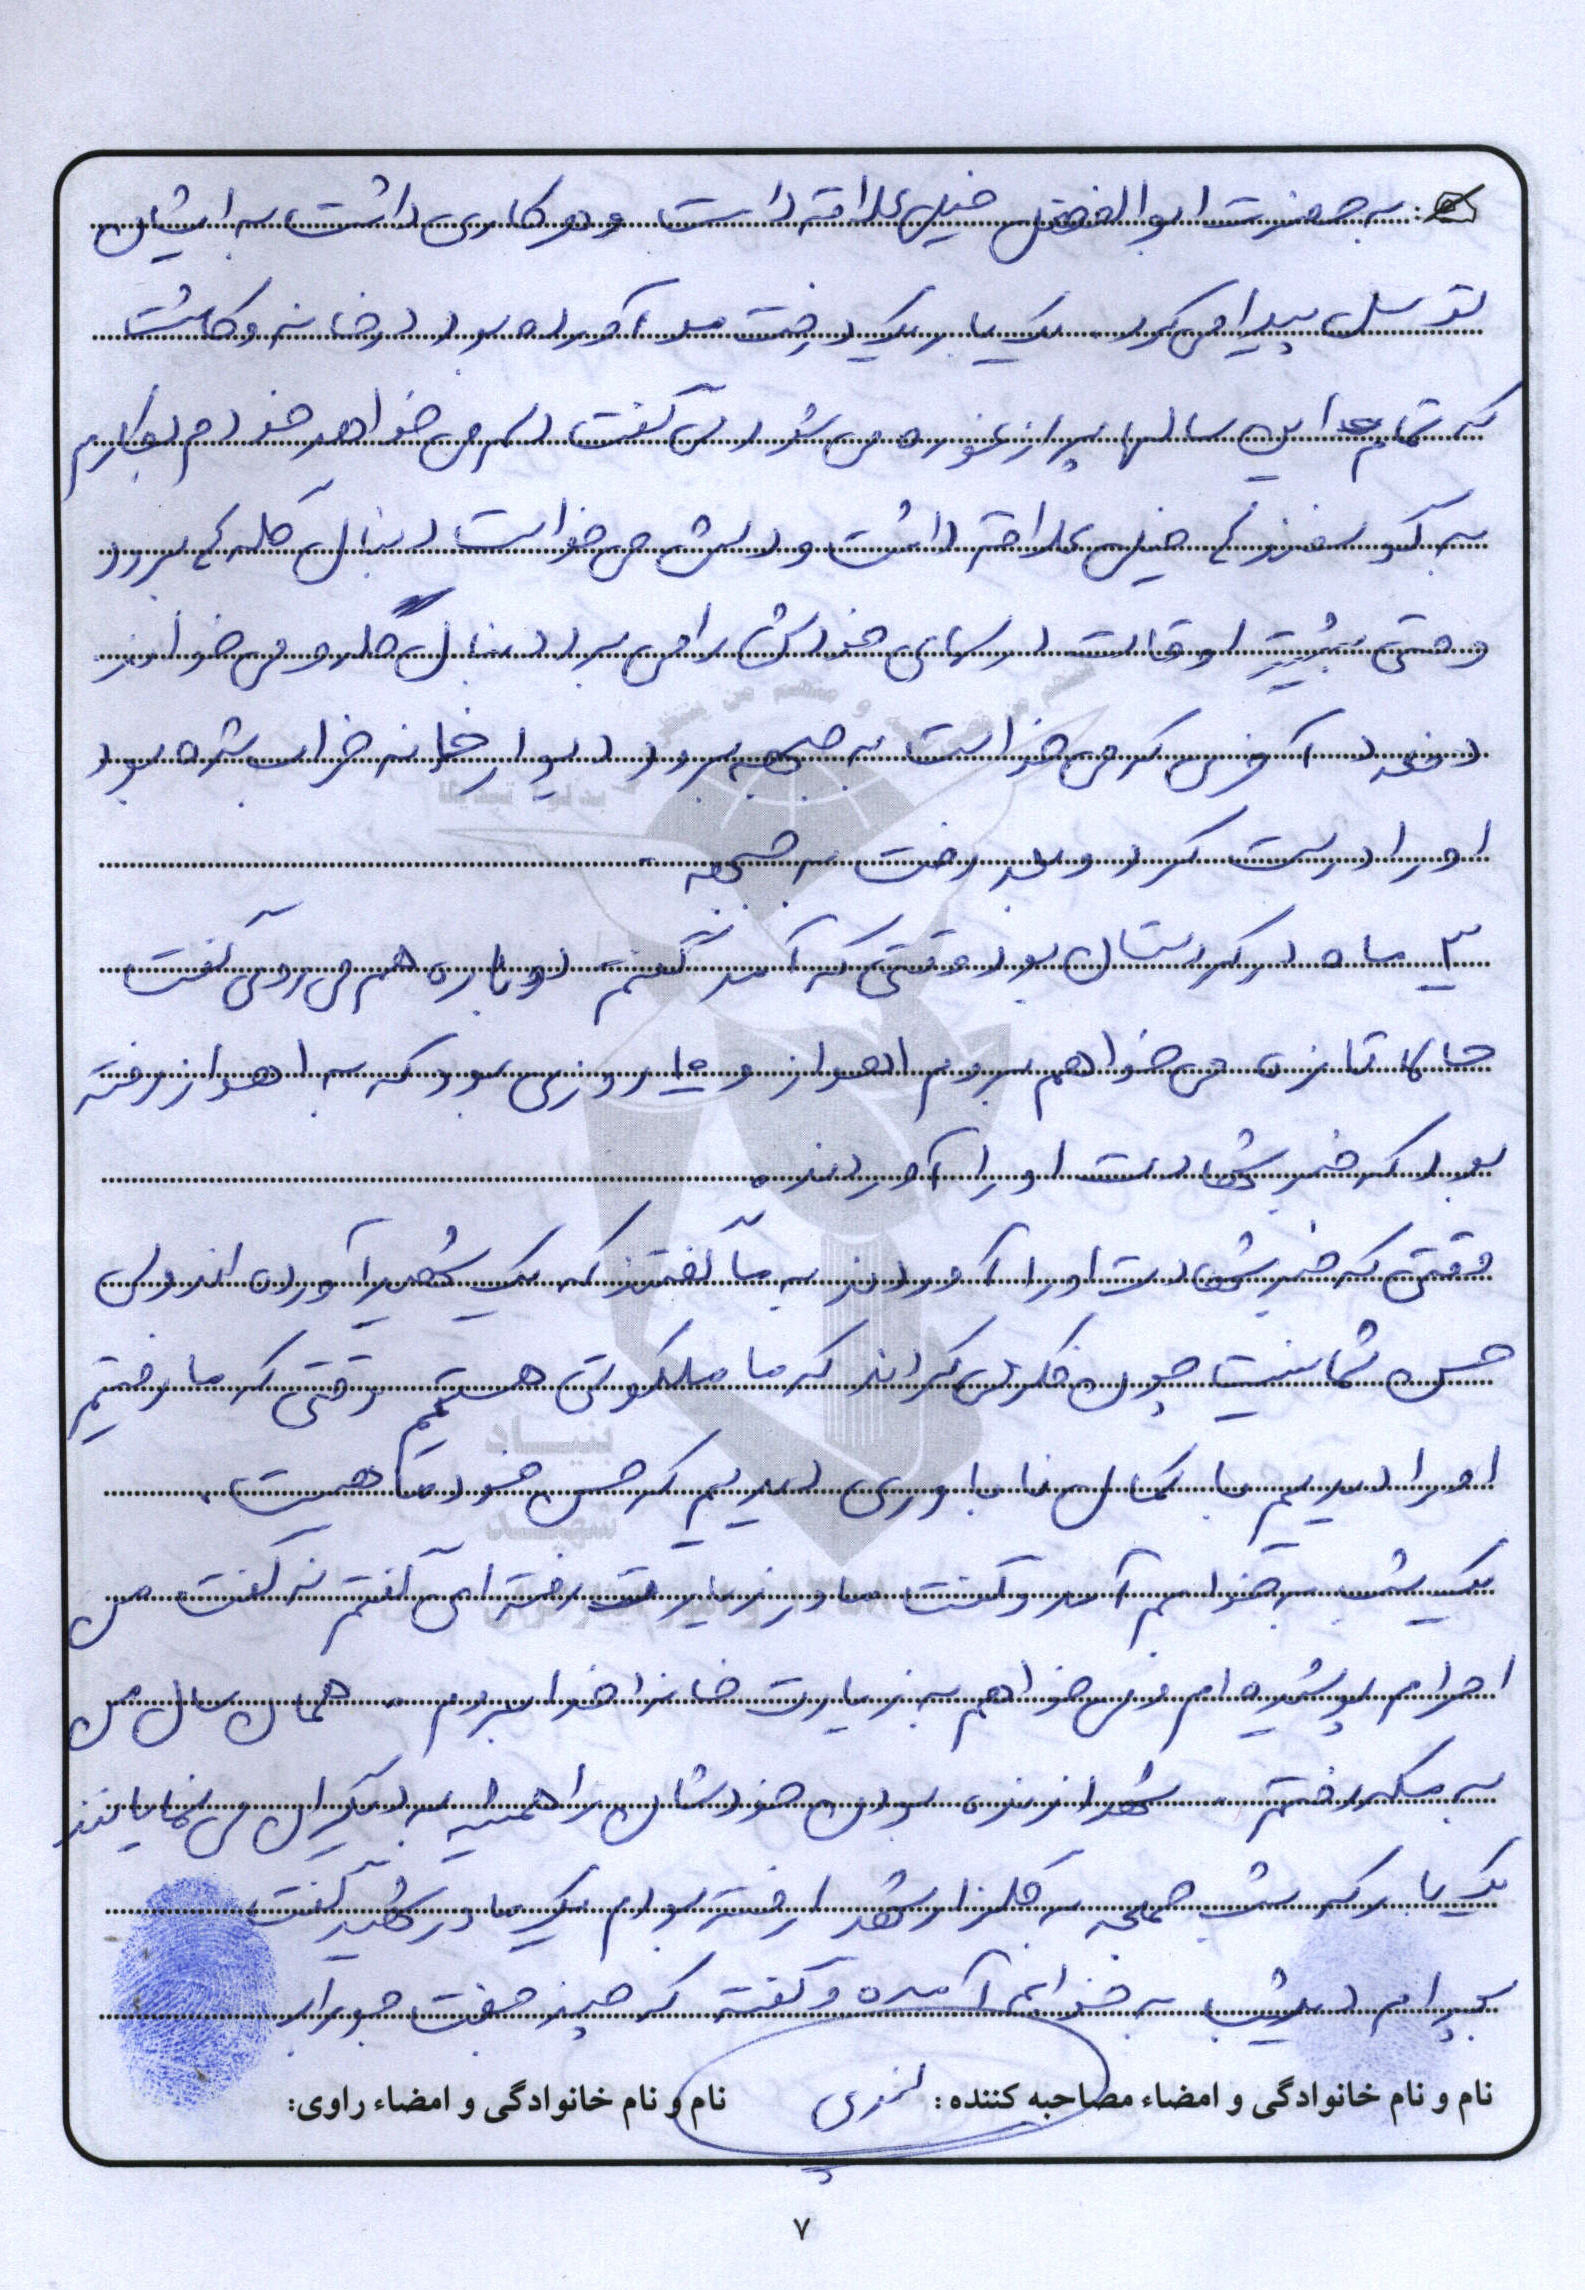 به حضرت ابوالفضل خیلی علاقه داشت و هر کاری داشت به ایشان
توسل پیدا می کرد. یک بار یک درخت مو آورده بود در خانه و کاشت
که تمام این سالها پر از غوره می شود می گفت دلم می خواهد خودم بکارم
به گوسفند ها خیلی علاقه داشت و دلش می خواست دنبال گله ها برود
و حتی بیشتر اوقات درسهای خودش را می برد دنبال گله و می خواند
دفعه آخری که می خواست به جبهه برود دیوار خانه خراب شده بود
او را درست کرد و بعد رفت به جبهه.
۳ ماه در کردستان بود وقتی که آمد گفتم دوباره هم می روی گفت
حالا تازه می خواهم بروم اهواز و ۱۵ روزی بود که به اهواز رفته
بود که خبر شهادت او را آوردند.
وقتی که خبر شهادت او را آوردند به ما گفتند که یک شهید آورده اند ولی
حسن شما نیست چون فکر می کردند که ما ملکوتی هستیم وقتی که ما رفتیم
او را دیدیم با کمال ناباوری دیدیم که حسن خود ما هست.
یک شب به خوابم آمد و گفت مادر زیارت رفته ای گفتم نه گفت من
احرام پوشیده ام و می خواهم به زیارت خانه خدا بروم. همان سال من
به مکه رفتم. شهدا زنده بودن خودشان را همیشه به دیگران می نمایانند
یک بار که شب جمعه به گلزار شهدا رفته بودم یک مادر شهید گفت
بهرام دیشب به خوابم آمده و گفته که چند جفت جوراب
نام و نام خانوادگی و امضاء مصاحبه کننده:
نام و نام خانوادگی و امضاء راوی:
۷